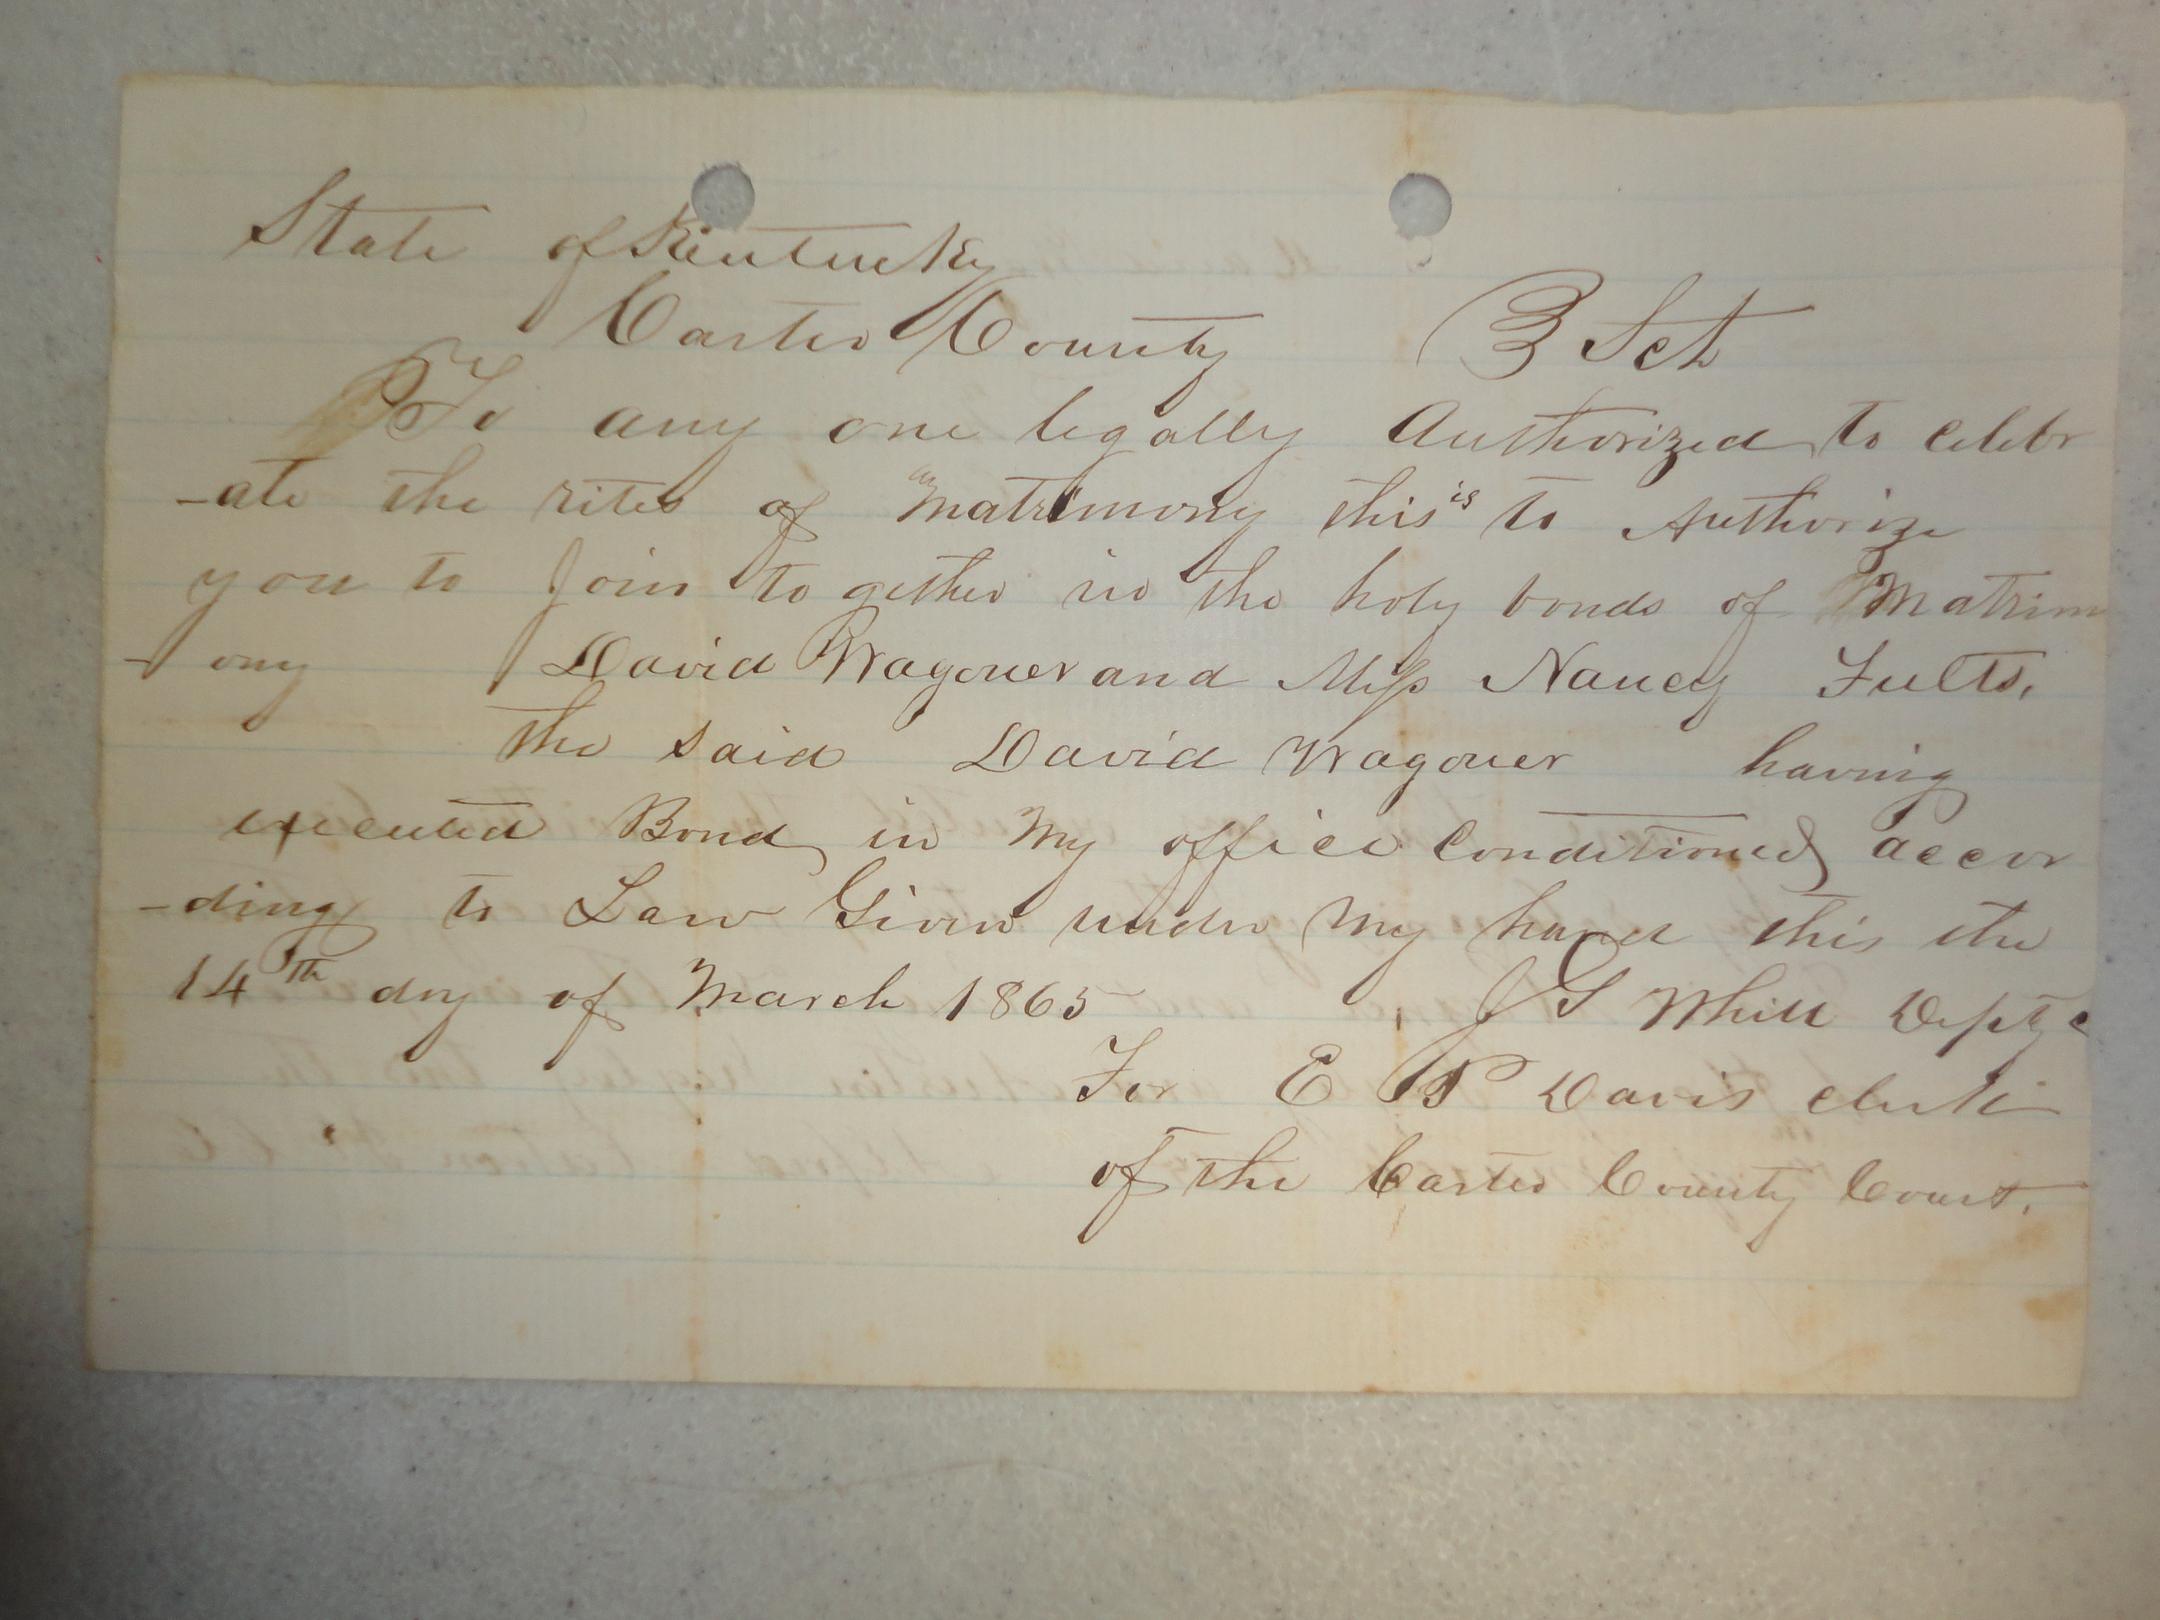 State of Kentucky
Carter County } Sct
To any one legally Authorized to celebr
-ate the rites of Matrimony this is to Authorize
you to Join to gether in the holy bonds of Matrim
-ony David Wagoner and Miss Nancy Fults,
the said David Wagoner having
executed Bond in My office Conditioned accor
-ding to Law Given under My hand this the
14th day of March 1865 J G Whitt Depty c
For E P Davis clerk
of the Carter County Court.